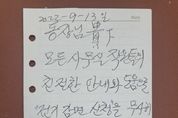 2023-9-13일
동장님 貴下
모든 사무실 직원들의
친절한 안내와 도움을
신청을 무사히